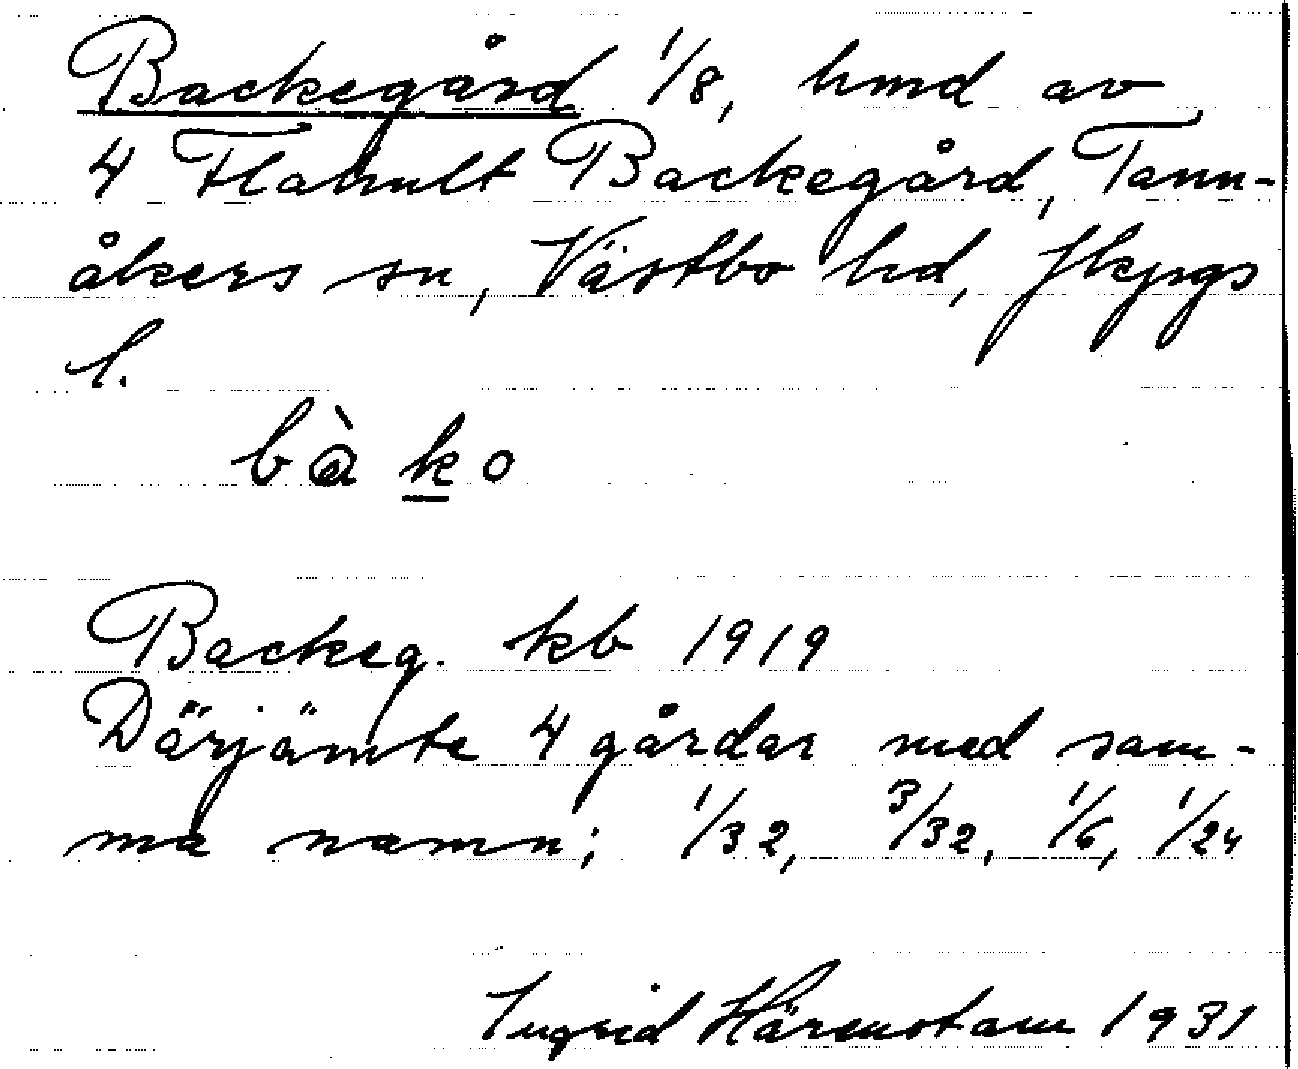 Backegård 1/8, hmd av
4 Flahult Backegård, Tann-
åkers sn, Västbo hd, Jkpgs
l.
bà ko
Backeg. kb 1919
Därjämte 4 gårdar med sam-
ma namn; 1/32, 3/32, 1/6, 1/24
Ingrid Härenstam 1931